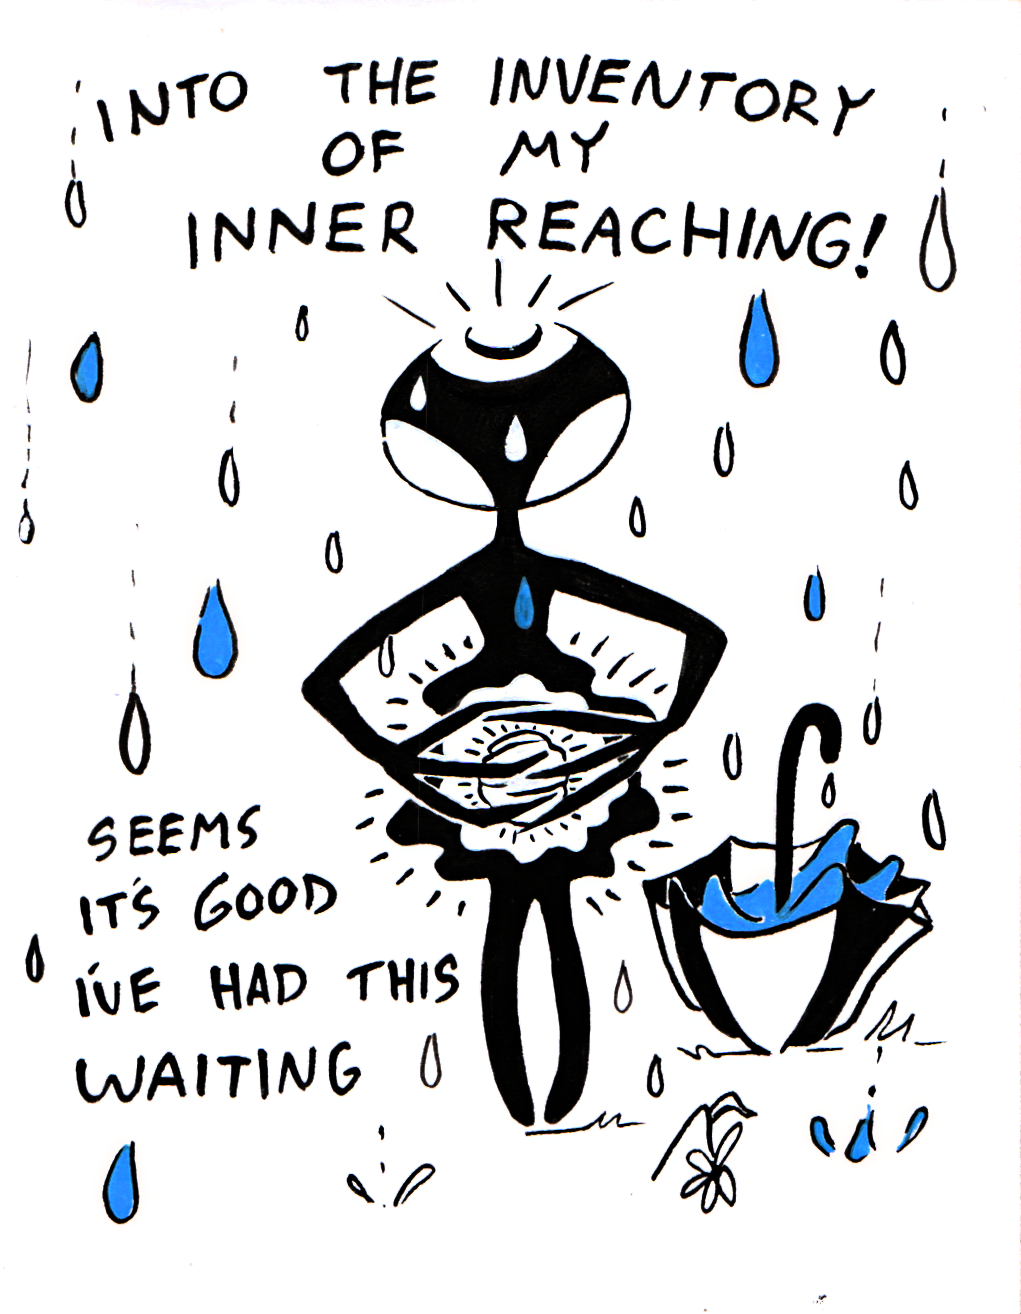 INTO THE INVENTORY
OF MY
INNER REACHING!
SEEMS
IT'S GOOD
I'VE HAD THIS
WAITING